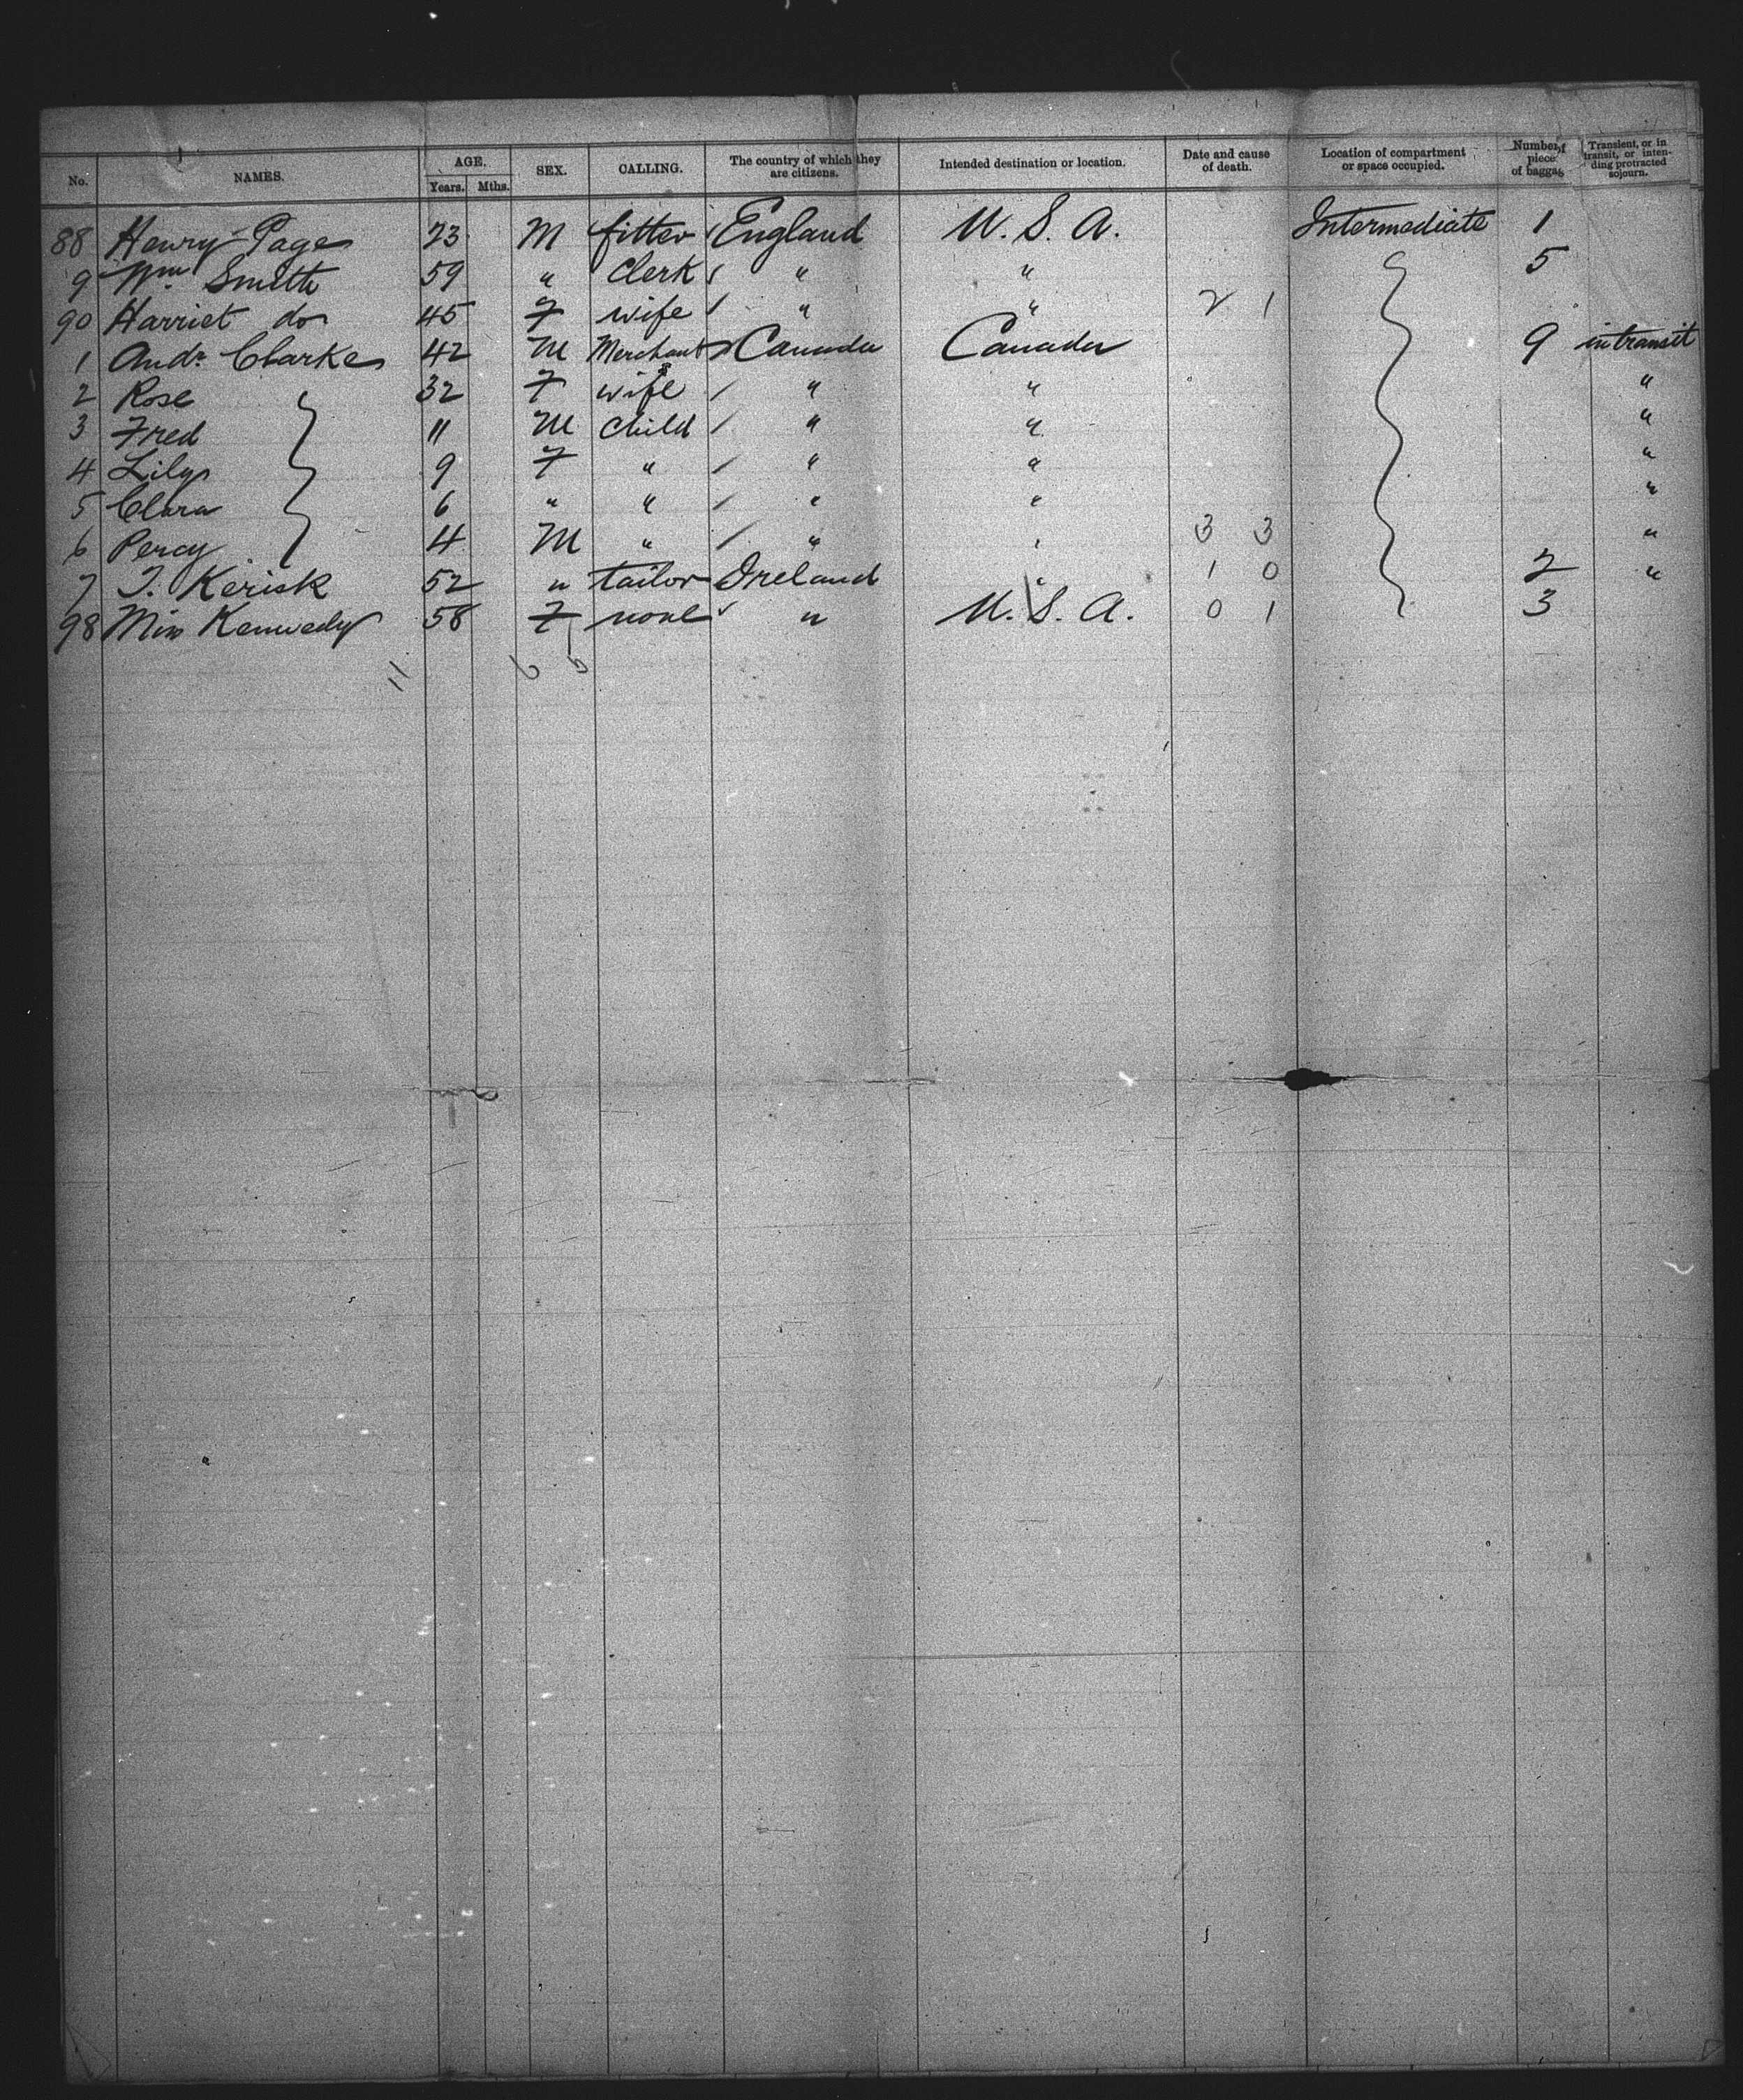 No. NAMES. AGE. Years. Mths. SEX. CALLING. The country of which they are citizens. Intended destination or location. Date and cause of death. Location of compartment or space occupied. Number of piece of baggag Transient, or in transit, or inten- ding protracted sojourn.
88 Henry Page 23 M fitter England U. S. A. Intermediate 1
9 Wm Smith 59 " Clerk " " 5
90 Harriet do 45 F wife " " 2 1
1 Andr. Clarke 42 M Merchant Canada Canada 9 in transit
2 Rose 32 F wife " " "
3 Fred 11 M Child " " "
4 Lily 9 F " " " "
5 Clara 6 " " " " "
6 Percy 4 M " " " 3 3 "
7 T. Kerisk 52 " tailor Ireland " 1 0 2 "
98 Miss Kennedy 58 F none " U. S. A. 0 1 3
11 6